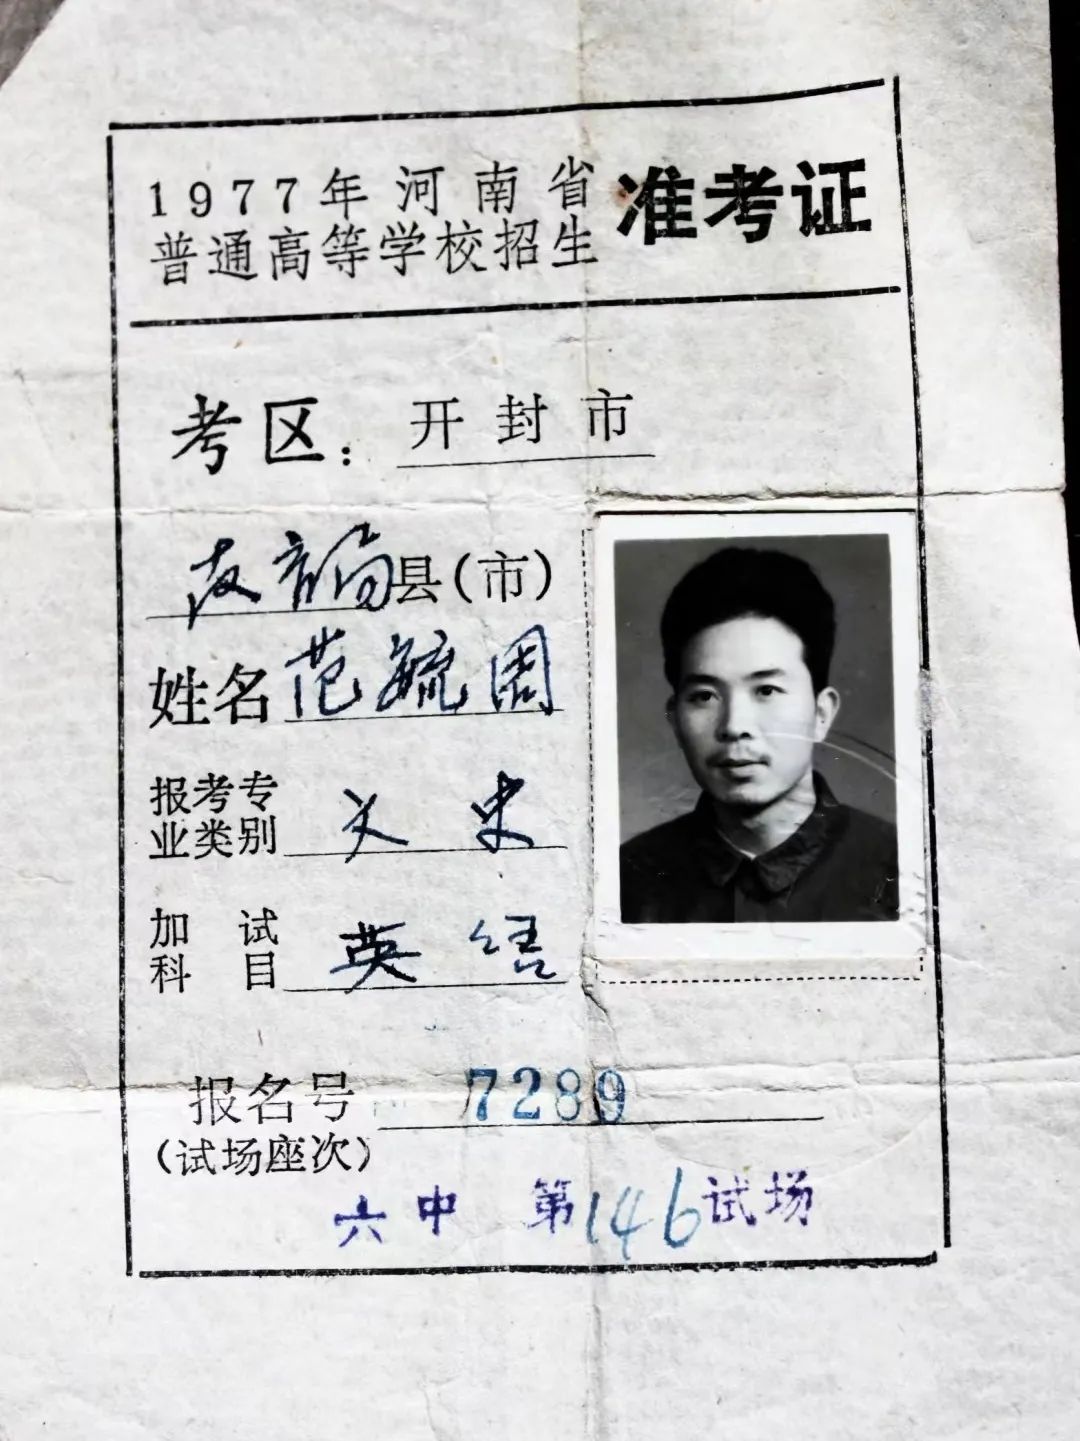 1977年河南省
普通高等学校招生
准考证
考区：开封市
县（市）
姓名 范毓周
报考专业类别 文史
加试科目 英语
报名号 7289
（试场座次）
六中 第146试场